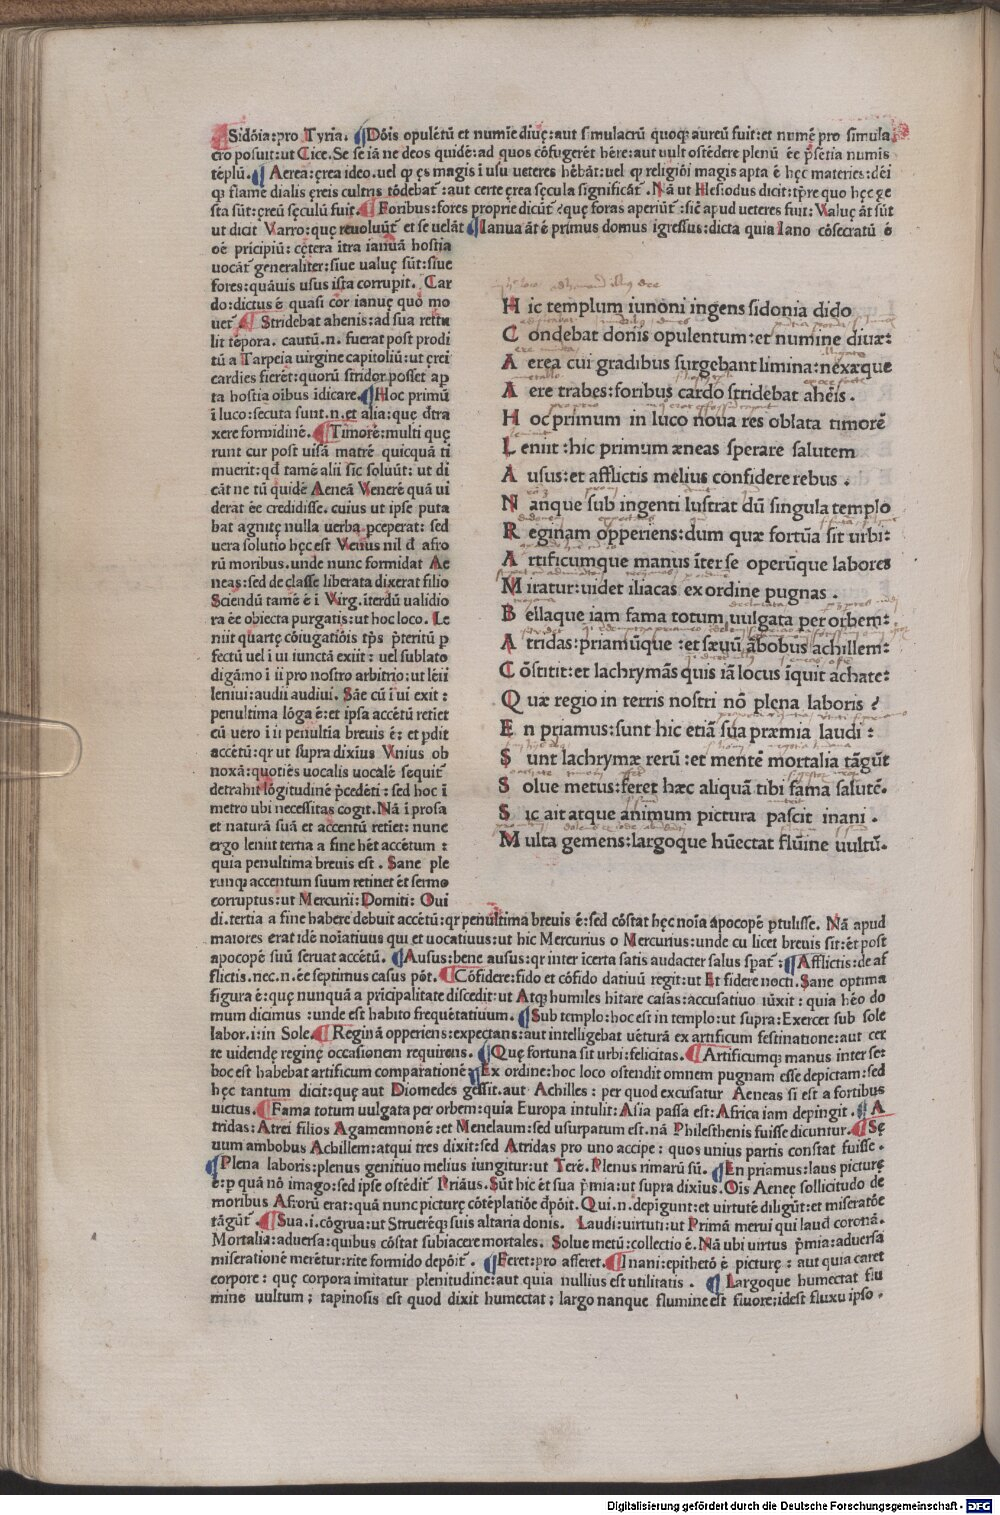 Sidōia:pro Tyria. Dōis opulētū et numīe diuę:aut simulacrū quoq; aureū fuit:et numē pro simula
cro posuit:ut Cice. Se se iā ne deos quidē:ad quos cōfugerēt hēre:aut uult ostēdere plenū ēe p̄sētia numis
tēplū. Aerea:ęrea ideo.uel ꝙ ęs magis ī usu ueteres hēbāt:uel ꝙ religiōi magis apta ē hęc materies:dēi
ꝙ flame dialis ęreis cultris tōdebat̄:aut certe ęrea sęcula significāt̄. Nā ut Hesiodus dicit:tp̄re quo hęc ge
sta sūt:ęreū sęculū fuit. Foribus:fores proprie dicūt̄ ꝗuę foras aperiūt̄:sic̄ apud ueteres fuit:Valuę āt sūt
ut dicit Varro:quę reuoluūt̄ et se uelāt Ianua āt ē primus domus īgressus:dicta quia Iano cōsecratū ē
oē pricipiū:cętera ītra ianuā hostia
uocāt̄ generaliter:siue ualuę sūt:siue
fores:quāuis usus ista corrupit. Car
do:dictus ē quasi cor ianuę quo mo
uet̄ Stridebat ahenis:ad sua rettu
lit tēpora. cautū.n. fuerat post prodi
tū a Tarpeia uirgine capitoliū:ut ęrei
cardies fierēt:quorū stridor posset ap
ta hostia oībus īdicare. Hoc primū
ī luco:secuta sunt.n.et alia:que d̄tra
xere formidinē. Timorē:multi quę
runt cur post uisā matrē quicquā ti
muerit:qd̄ tamē alii sic soluūt:ut di
cāt ne tū quidē Aeneā Venerē quā ui
derat ēe credidisse.cuius ut ipse puta
bat agnitę nulla uerba p̱ceperat:sed
uera solutio hęc est Venus nil d̄ afro
rū moribus.unde nunc formidat Ae
neas:sed de classe liberata dixerat filio
Sciendū tamē ē ī Virg.īterdū ualidio
ra ēe obiecta purgatis:ut hoc loco. Le
niit quartę cōiugatiōis tp̄s p̄teritū p̱
fectū uel ī ui iunctā exiit:uel sublato
digāmo ī ii pro nostro arbitrio:ut lēii
leniui:audii audiui. Sāe cū ī ui exit:
penultima lōga ē:et ipsa accētū retiet
cū uero ī ii penultīa breuis ē:et p̱dit
accētū:qr ut supra dixīus Vnius ob
noxā:quotiēs uocalis uocalē sequit̄
detrahit lōgitudinē p̄cedēti:sed hoc ī
metro ubi necessitas cogit. Nā ī prosa
et naturā suā et accentū retiet:nunc
ergo leniit tertia a fine hēt accētum:
quia penultima breuis est. Sane ple
runq; accentum suum retinet ēt sermo
corruptus:ut Mercurii:Domiti:Oui
di.tertia a fine habere debuit accētū:qr penultima breuis ē:sed cōstat hęc noīa apocopē ptulisse. Nā apud
maiores erat idē noīatiuus qui et uocatiuus:ut hic Mercurius o Mercurius:unde cu licet breuis sit:ēt post
apocopē suū seruat accētū. Ausus:bene ausus:qr inter īcerta satis audacter salus spat̄: Afflictis:de af
flictis.nec.n.ēe septimus casus pōt. Cōfidere:fido et cōfido datiuū regit:ut Et fidere nocti. Sane optima
figura ē:quę nunquā a prīcipalitate discedit:ut Atq; humiles hītare casas:accusatiuo iūxit:quia hēo do
mum dicimus:unde est habito frequētatiuum. Sub templo:hoc est in templo:ut supra:Exercet sub sole
labor.i:in Sole. Reginā opperiens:expectans:aut intelligebat uēturā ex artificum festinatione:aut cer
te uidendę reginę occasionem requirens. Quę fortuna sit urbi:felicitas. Artificumq; manus inter se:
hoc est habebat artificum comparationē Ex ordine:hoc loco ostendit omnem pugnam esse depictam:sed
hęc tantum dicit:quę aut Diomedes gessit.aut Achilles:per quod excusatur Aeneas si est a fortibus
uictus. Fama totum uulgata per orbem:quia Europa intulit:Asia passa est:Africa iam depingit. A
tridas:Atrei filios Agamemnonē:et Menelaum:sed usurpatum est.nā Philesthenis fuisse dicuntur. Sę
uum ambobus Achillem:atqui tres dixit:sed Atridas pro uno accipe:quos unius partis constat fuisse.
Plena laboris:plenus genitiuo melius iungitur:ut Terē. Plenus rimarū sū. En priamus:laus picturę
ē:p̱ quā nō imago:sed ipse ostēdit̄ Priāus. Sūt hic ēt sua p̄mia:ut supra dixius. Oīs Aeneę sollicitudo de
moribus Afrorū erat:quā nunc picturę cōtēplatiōe d̄pōit. Qui.n.depigunt:et uirtutē diligūt:et miseratōe
tāgūt̄. Sua.i.cōgrua:ut Struerēq; suis altaria donis. Laudi:uirtuti:ut Primā merui qui laud coronā.
Mortalia:aduersa:quibus cōstat subiacere mortales. Solue metū:collectio ē. Nā ubi uirtus p̄mia:aduersa
miserationē merētur:rite formido depōit̄. Feret:pro afferet. Inani:epithetō ē picturę:aut quia caret
corpore:quę corpora imitatur plenitudine:aut quia nullius est utilitatis. Largoque humectat flu
mine uultum; tapinosis est quod dixit humectat; largo nanque flumine est fluore;idest fluxu ipso.
H ic templum iunoni ingens sidonia dido
C ondebat donis opulentum:et numine diuæ:
A erea cui gradibus surgebant limina:nexæque
A ere trabes:foribus cardo stridebat ahēis.
H oc primum in luco noua res oblata timorē
L eniit:hic primum æneas sperare salutem
A usus:et afflictis melius confidere rebus.
N anque sub ingenti lustrat dū singula templo
R eginam opperiens:dum quæ fortūa sit urbi:
A rtificumque manus īter se operūque labores
M iratur:uidet iliacas ex ordine pugnas.
B ellaque iam fama totum uulgata per orbem:
A tridas:priamūque:et sæuū ābobus achillem:
C ōstitit:et lachrymās quis iā locus īquit achate:
Q uæ regio in terris nostri nō plena laboris?
E n priamus:sunt hic etiā sūa præmia laudi:
S unt lachrymæ rerū:et mentē mortalia tāgūt
S olue metus:feret hæc aliquā tibi fama salutē.
S ic ait atque animum pictura pascit inani.
M ulta gemens:largoque hūectat flūine uultū.
Digitalisierung gefördert durch die Deutsche Forschungsgemeinschaft - DFG